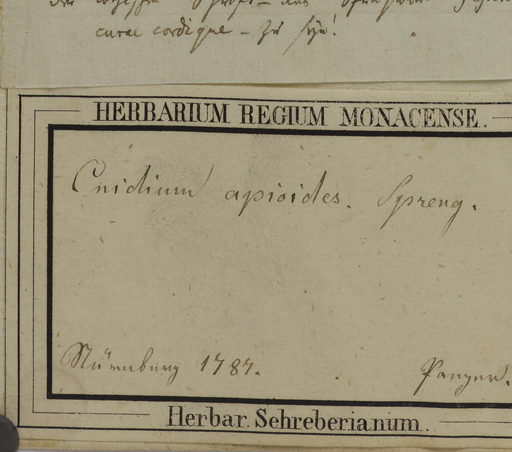 curae cordique – zu seyn!
HERBARIUM REGIUM MONACENSE.
Cnidium apioides. Spreng.
Nürnberg 1787. Panzer.
Herbar. Schreberianum.